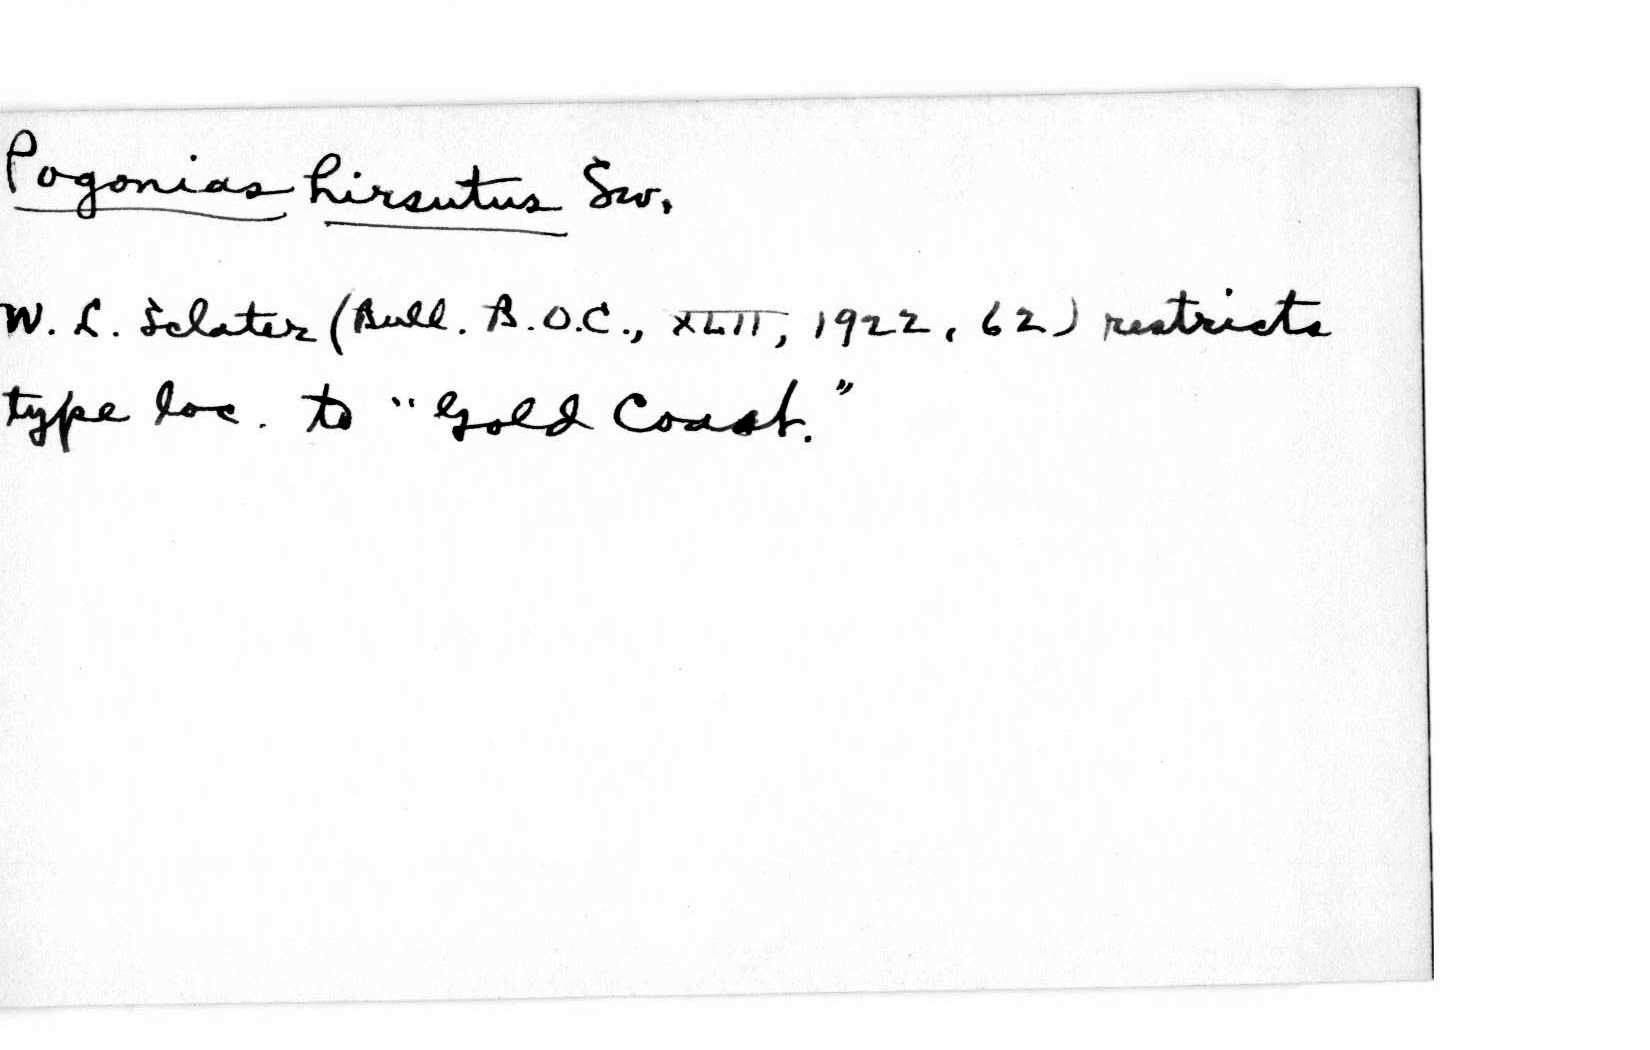 Pogonias hirsutus Sw.
W. L. Sclater (Bull. B.O.C., XLII, 1922, 62) restricts
type loc. to "Gold Coast."